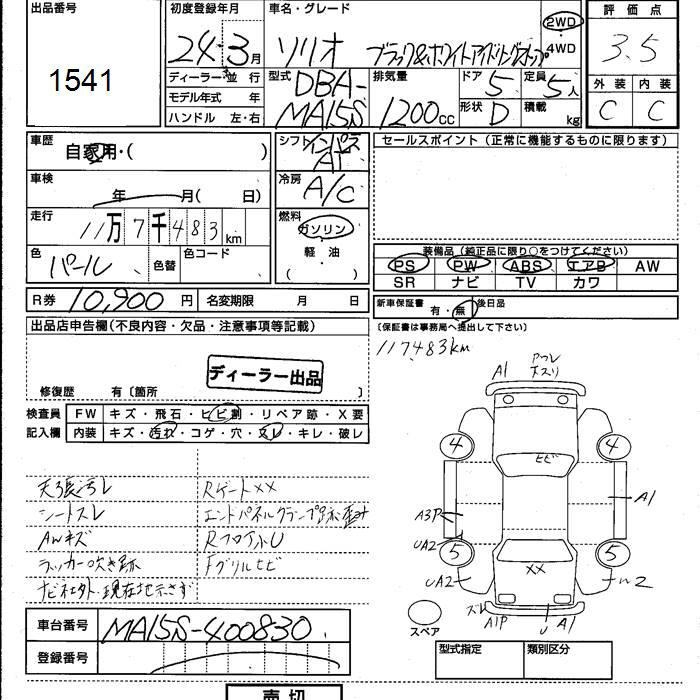 出品番号
1541
初度登録年月
24年3月
車名・グレード
ソリオ ブラック&ホワイトアイドリングストップ
2WD
4WD
評価点
3.5
外装 内装
C C
ディーラー 並行
モデル年式 年
ハンドル 左・右
型式
DBA-
MA15S
排気量
1200cc
ドア 5
形状 D
定員 5人
積載 kg
車歴
自家用・( )
車検
年 月( 日)
走行
11万7千483km
色
パール
色替
色コード
シフト
インパネ
AT
冷房
A/C
燃料
ガソリン
軽・油
( ・ )
セールスポイント(正常に機能するものに限ります)
装備品(純正品に限り○をつけてください)
PS PW ABS エアB AW
SR ナビ TV カワ
R券 10,900円
名変期限 月 日
新車保証書 有・無
後日品
(保証書は事務局へ提出して下さい)
117483km
出品店申告欄(不良内容・欠品・注意事項等記載)
ディーラー出品
修復歴 有〔箇所 〕
検査員
記入欄
FW キズ・飛石・ヒビ割・リペア跡・X要
内装 キズ・汚れ・コゲ・穴・スレ・キレ・破レ
天張汚レ
シートスレ
AWキズ
ラッカー吹き跡
ナビ社外・現在地示さず
Rゲート××
エンドパネルクランプ跡歪み
RフロアU
Fグリルヒビ
A1
4
4
ヒビ
A1
A3P
UA2
5
5
UA2
××
A1P
U
A1
スペア
車台番号 MA15S-400830
登録番号
型式指定
類別区分
売切